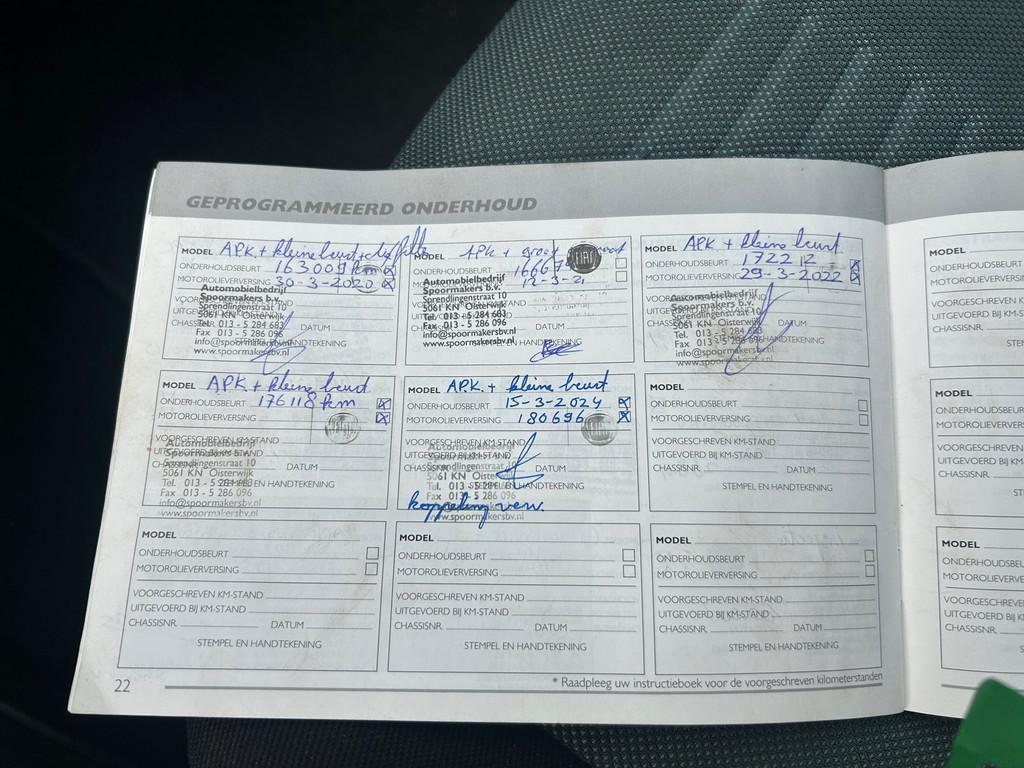 GEPROGRAMMEERD ONDERHOUD
MODEL APK + kleine beurt
ONDERHOUDSBEURT 163009 km
MOTOROLIEVERVERSING 30-3-2020
Automobielbedrijf
Spoormakers b.v.
Sprendlingenstraat 10
5061 KN Oisterwijk
Tel. 013 - 5 284 683
Fax 013 - 5 286 096
info@spoormakersbv.nl
www.spoormakersbv.nl
CHASSISNR. DATUM
STEMPEL EN HANDTEKENING
MODEL APK + groot
FIAT
ONDERHOUDSBEURT
MOTOROLIEVERVERSING 12-3-21
Automobielbedrijf
Spoormakers b.v.
Sprendlingenstraat 10
5061 KN Oisterwijk
Tel. 013 - 5 284 683
Fax 013 - 5 286 096
info@spoormakersbv.nl
www.spoormakersbv.nl
DATUM
STEMPEL EN HANDTEKENING
MODEL APK + kleine beurt
ONDERHOUDSBEURT 172212
MOTOROLIEVERVERSING 29-3-2022
Automobielbedrijf
Spoormakers b.v.
Sprendlingenstraat 10
5061 KN Oisterwijk
Tel. 013 - 5 284 683
Fax 013 - 5 286 096
info@spoormakersbv.nl
www.spoormakersbv.nl
DATUM
STEMPEL EN HANDTEKENING
MODEL APK + kleine beurt
ONDERHOUDSBEURT 176118 km
MOTOROLIEVERVERSING
VOORGESCHREVEN KM-STAND
UITGEVOERD BIJ KM-STAND
Automobielbedrijf
Spoormakers b.v.
Sprendlingenstraat 10
5061 KN Oisterwijk
Tel. 013 - 5 284 683
Fax 013 - 5 286 096
info@spoormakersbv.nl
www.spoormakersbv.nl
DATUM
STEMPEL EN HANDTEKENING
MODEL APK + kleine beurt
ONDERHOUDSBEURT 15-3-2024
MOTOROLIEVERVERSING 180696
VOORGESCHREVEN KM-STAND
UITGEVOERD BIJ KM-STAND
CHASSISNR. DATUM
Automobielbedrijf
Spoormakers b.v.
Sprendlingenstraat 10
5061 KN Oisterwijk
Tel. 013 - 5 284 683
Fax 013 - 5 286 096
www.spoormakersbv.nl
STEMPEL EN HANDTEKENING
koppeling verv.
MODEL
ONDERHOUDSBEURT
MOTOROLIEVERVERSING
VOORGESCHREVEN KM-STAND
UITGEVOERD BIJ KM-STAND
CHASSISNR. DATUM
STEMPEL EN HANDTEKENING
MODEL
ONDERHOUDSBEURT
MOTOROLIEVERVERSING
VOORGESCHREVEN KM-STAND
UITGEVOERD BIJ KM-STAND
CHASSISNR. DATUM
STEMPEL EN HANDTEKENING
MODEL
ONDERHOUDSBEURT
MOTOROLIEVERVERSING
VOORGESCHREVEN KM-STAND
UITGEVOERD BIJ KM-STAND
CHASSISNR. DATUM
STEMPEL EN HANDTEKENING
MODEL
ONDERHOUDSBEURT
MOTOROLIEVERVERSING
VOORGESCHREVEN KM-STAND
UITGEVOERD BIJ KM-STAND
CHASSISNR. DATUM
STEMPEL EN HANDTEKENING
22
* Raadpleeg uw instructieboek voor de voorgeschreven kilometerstanden
MODEL
CHASSISNR.
MODEL
CHASSISNR.
MODEL
CHASSISNR.